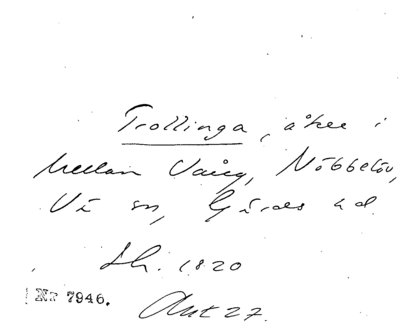 Trollinga, åker i
Mellan Vång, Nöbbelöv,
Vä sn, Gärds hd
Sk. 1820
Nr 7946.
Akt 27.